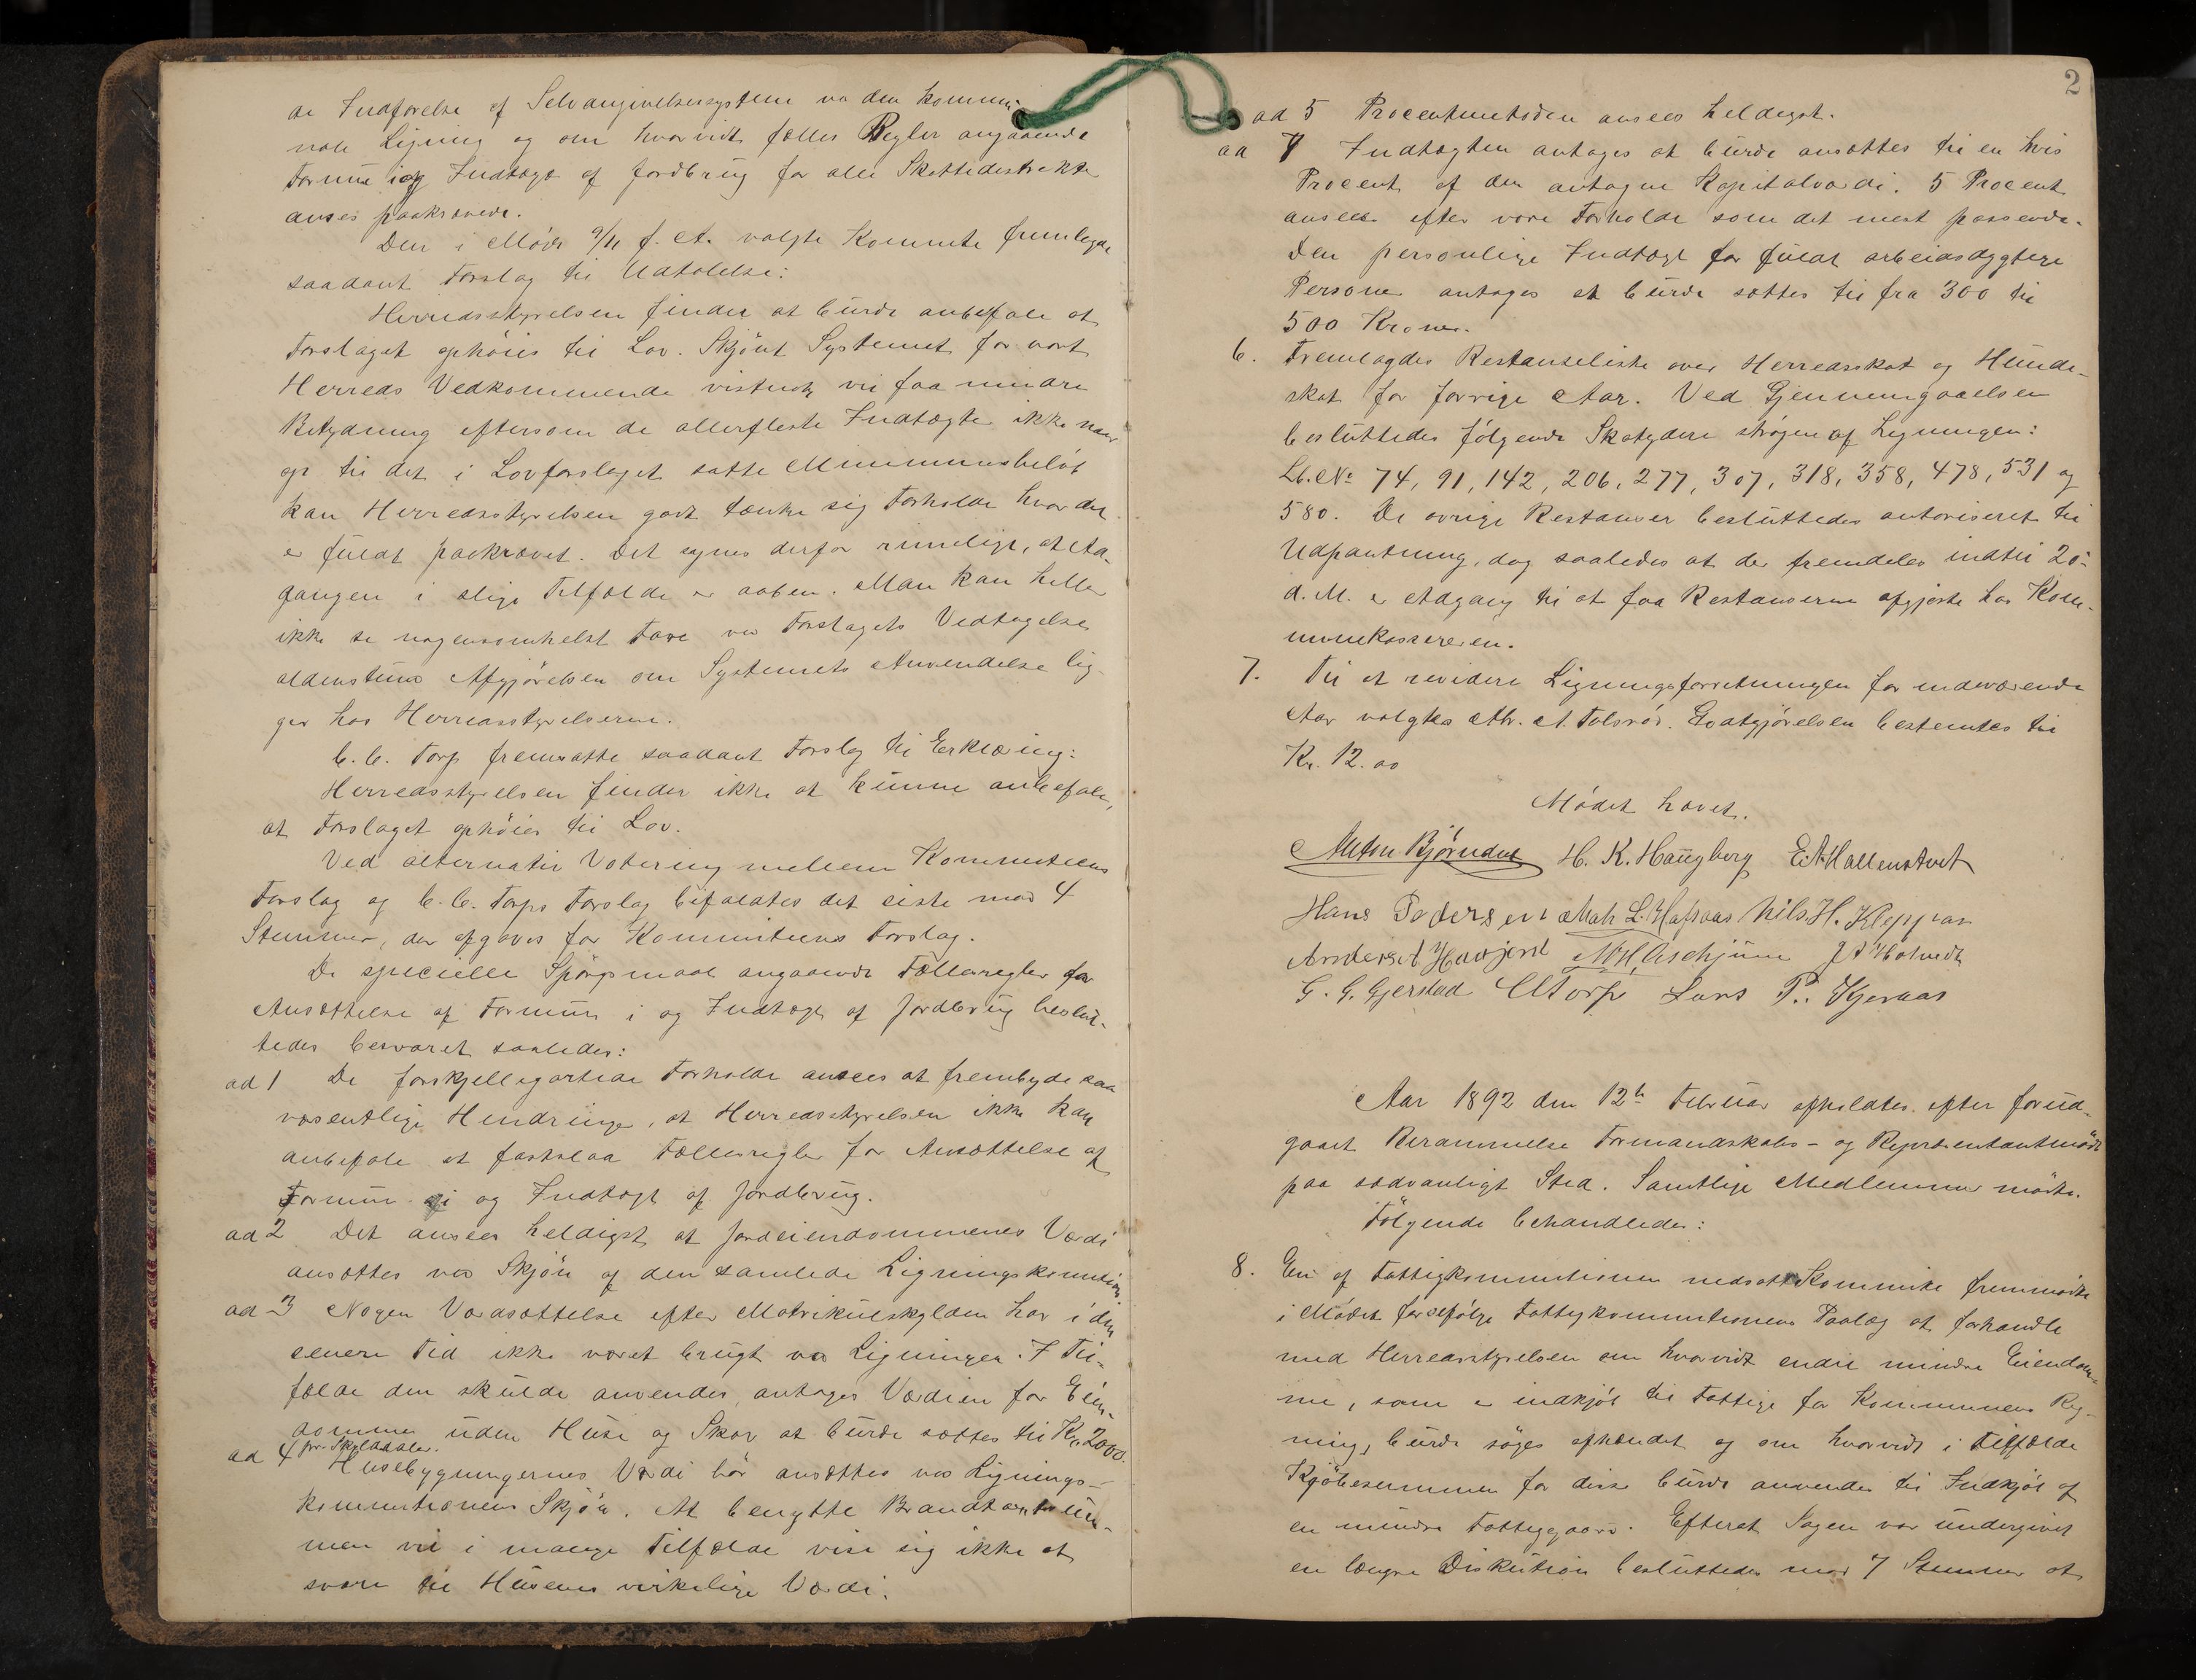 de Indførelse af Selvangivelsessystem ved den kommu-
nale Ligning og om hvorvidt fælles Regler angaaende
Formue i og Indtægt af Jordbrug for alle Skattedistrikter
anses paakrævede.
Den i Møde 9/11 f. A. valgte Komite fremlagde
saadant Forslag til Udtalelse:
Herredsstyrelsen finder at burde anbefale at
Forslaget ophöies til Lov. Skjönt Systemet for vort
Herreds Vedkommende vistnok vil faa mindre
Betydning eftersom de allerfleste Indtægter ikke naar
op til det i Lovforslaget satte Minimumsbeløb
kan Herredsstyrelsen godt tænke sig Forholde hvor det
er fuldt paakrævet. Det synes derfor rimeligt, at Ad-
gangen i slige Tilfælde er aaben. Man kan heller
ikke se nogensomhelst Fare ved Forslagets Vedtagelse
aldenstund Afgjörelsen om Systemets Anvendelse lig-
ger hos Herredsstyrelserne.
C. C. Torp fremsatte saadant Forslag til Erklæring:
Herredsstyrelsen finder ikke at kunne anbefale,
at Forslaget ophöies til Lov.
Ved alternativ Votering mellem Kommiteens
Forslag og C. C. Torps Forslag bifaldtes det siste mod 4
Stemmer, der afgaves for Kommiteens Forslag.
De specielle Spörgsmaal angaaende Fællesregler for
Ansættelse af Formue i og Indtægt af Jordbrug beslut-
tedes besvaret saaledes:
ad 1 De forskjelligartede Forholde ansees at frembyde saa
væsentlige Hindringer, at Herredsstyrelsen ikke kan
anbefale at fastslaa Fællesregler for Ansættelse af
Formue i og Indtægt af Jordbrug.
ad 2 Det ansees heldigst at Jordeiendommenes Værdi
ansættes ved Skjön af den samlede Ligningskommission
ad 3 Nogen Værdsættelse efter Matrikulskylden har i den
senere Tid ikke været brugt ved Ligningen. I Til-
fælde den skulde anvendes antages Værdien for Eien-
domme uden Huse og Skov at burde sættes til Kr. 2000.
pr. Skylddaler.
ad 4 Husebygningernes Værdi bör ansættes ved Lignings-
kommissionens Skjön. At benytte Brandtaxtsum-
men vil i mange Tilfælde vise sig ikke at
svare til Husenes virkelige Værdi.
2
ad 5 Procentmetoden ansees heldigst.
ad 7 Indtægten antages at burde ansættes til en vis
Procent af den antagne Kapitalværdi. 5 Procent
ansees efter vore Forholde som det mest passende.
Den personlige Indtægt for fuldt arbeidsdygtige
Personer antages at burde sættes til fra 300 til
500 Kroner.
6. Fremlagdes Restanseliste over Herredsskat og Hunde-
skat for forrige Aar. Ved Gjennemgaaelsen
besluttedes følgende Skatydere strøgen af Ligningen:
Lb. No 74, 91, 142, 206, 277, 307, 318, 358, 478, 531 og
580. De øvrige Restanser besluttedes autoriseret til
Udpantning, dog saaledes at der fremdeles indtil 20-
d. M. er Adgang til at faa Restanserne opgjorte hos Kom-
munekassereren.
7. Til at revidere Ligningsforretningen for indeværende
Aar valgtes Ab. A. Tolsrød. Godtgjörelsen bestemtes til
Kr. 12.00
Mödet hævet.
Anton Bjørndal H. K. Haugberg E. A. Hallenstvet
Hans Pedersen Math. L. Hafsaas Nils H. Kleppan
Anders A. Haasjord N. H. Aschjum J A Holtvedt
G. G. Gjerstad CCTorp Lars P. Kjeraas
Aar 1892 den 12te Februar afholdtes efter forud-
gaaet Berammelse Formandskabs- og Repræsentantmöde
paa sædvanligt Sted. Samtlige Medlemmer mödte.
Fölgende behandledes:
8. En af Fattigkommisionen nedsatt Kommite fremmödte
i Mødet forat ifölge Fattigkommisionens Paalæg at forhandle
med Herredsstyrelsen om hvorvidt endel mindre Eiendom-
me, som er indkjöbt til Fattige for Kommunens Reg-
ning, burde söges afhændet og om hvorvidt i Tilfælde
Kjöbesummen for disse burde anvendes til Indkjöb af
en mindre Fattiggaard. Efterat Sagen var undergivet
en længre Diskution besluttedes mod 7 Stemmer at